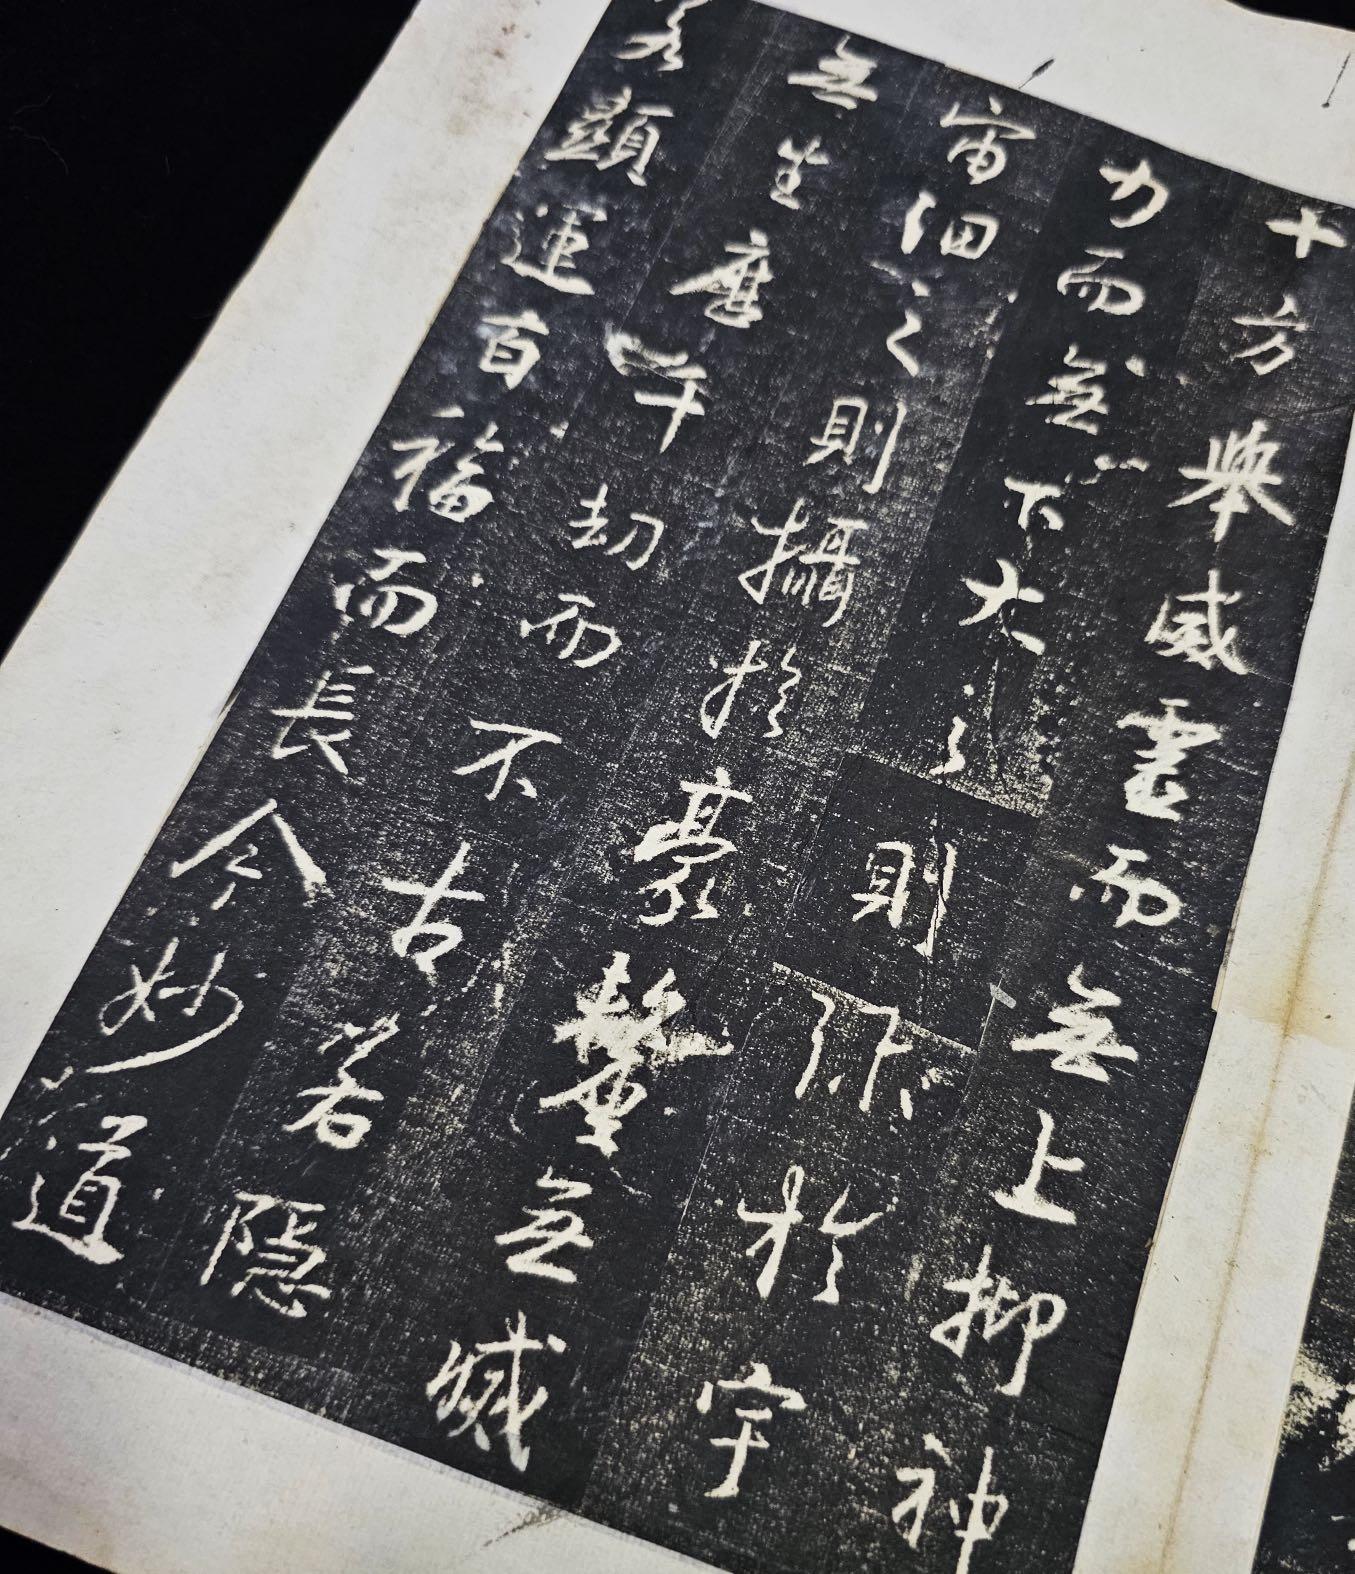 十方舉威靈而無上抑神
力而無下大之則彌於宇
宙細之則攝於豪釐無滅
無生歷千劫而不古若隱
若顯運百福而長今妙道